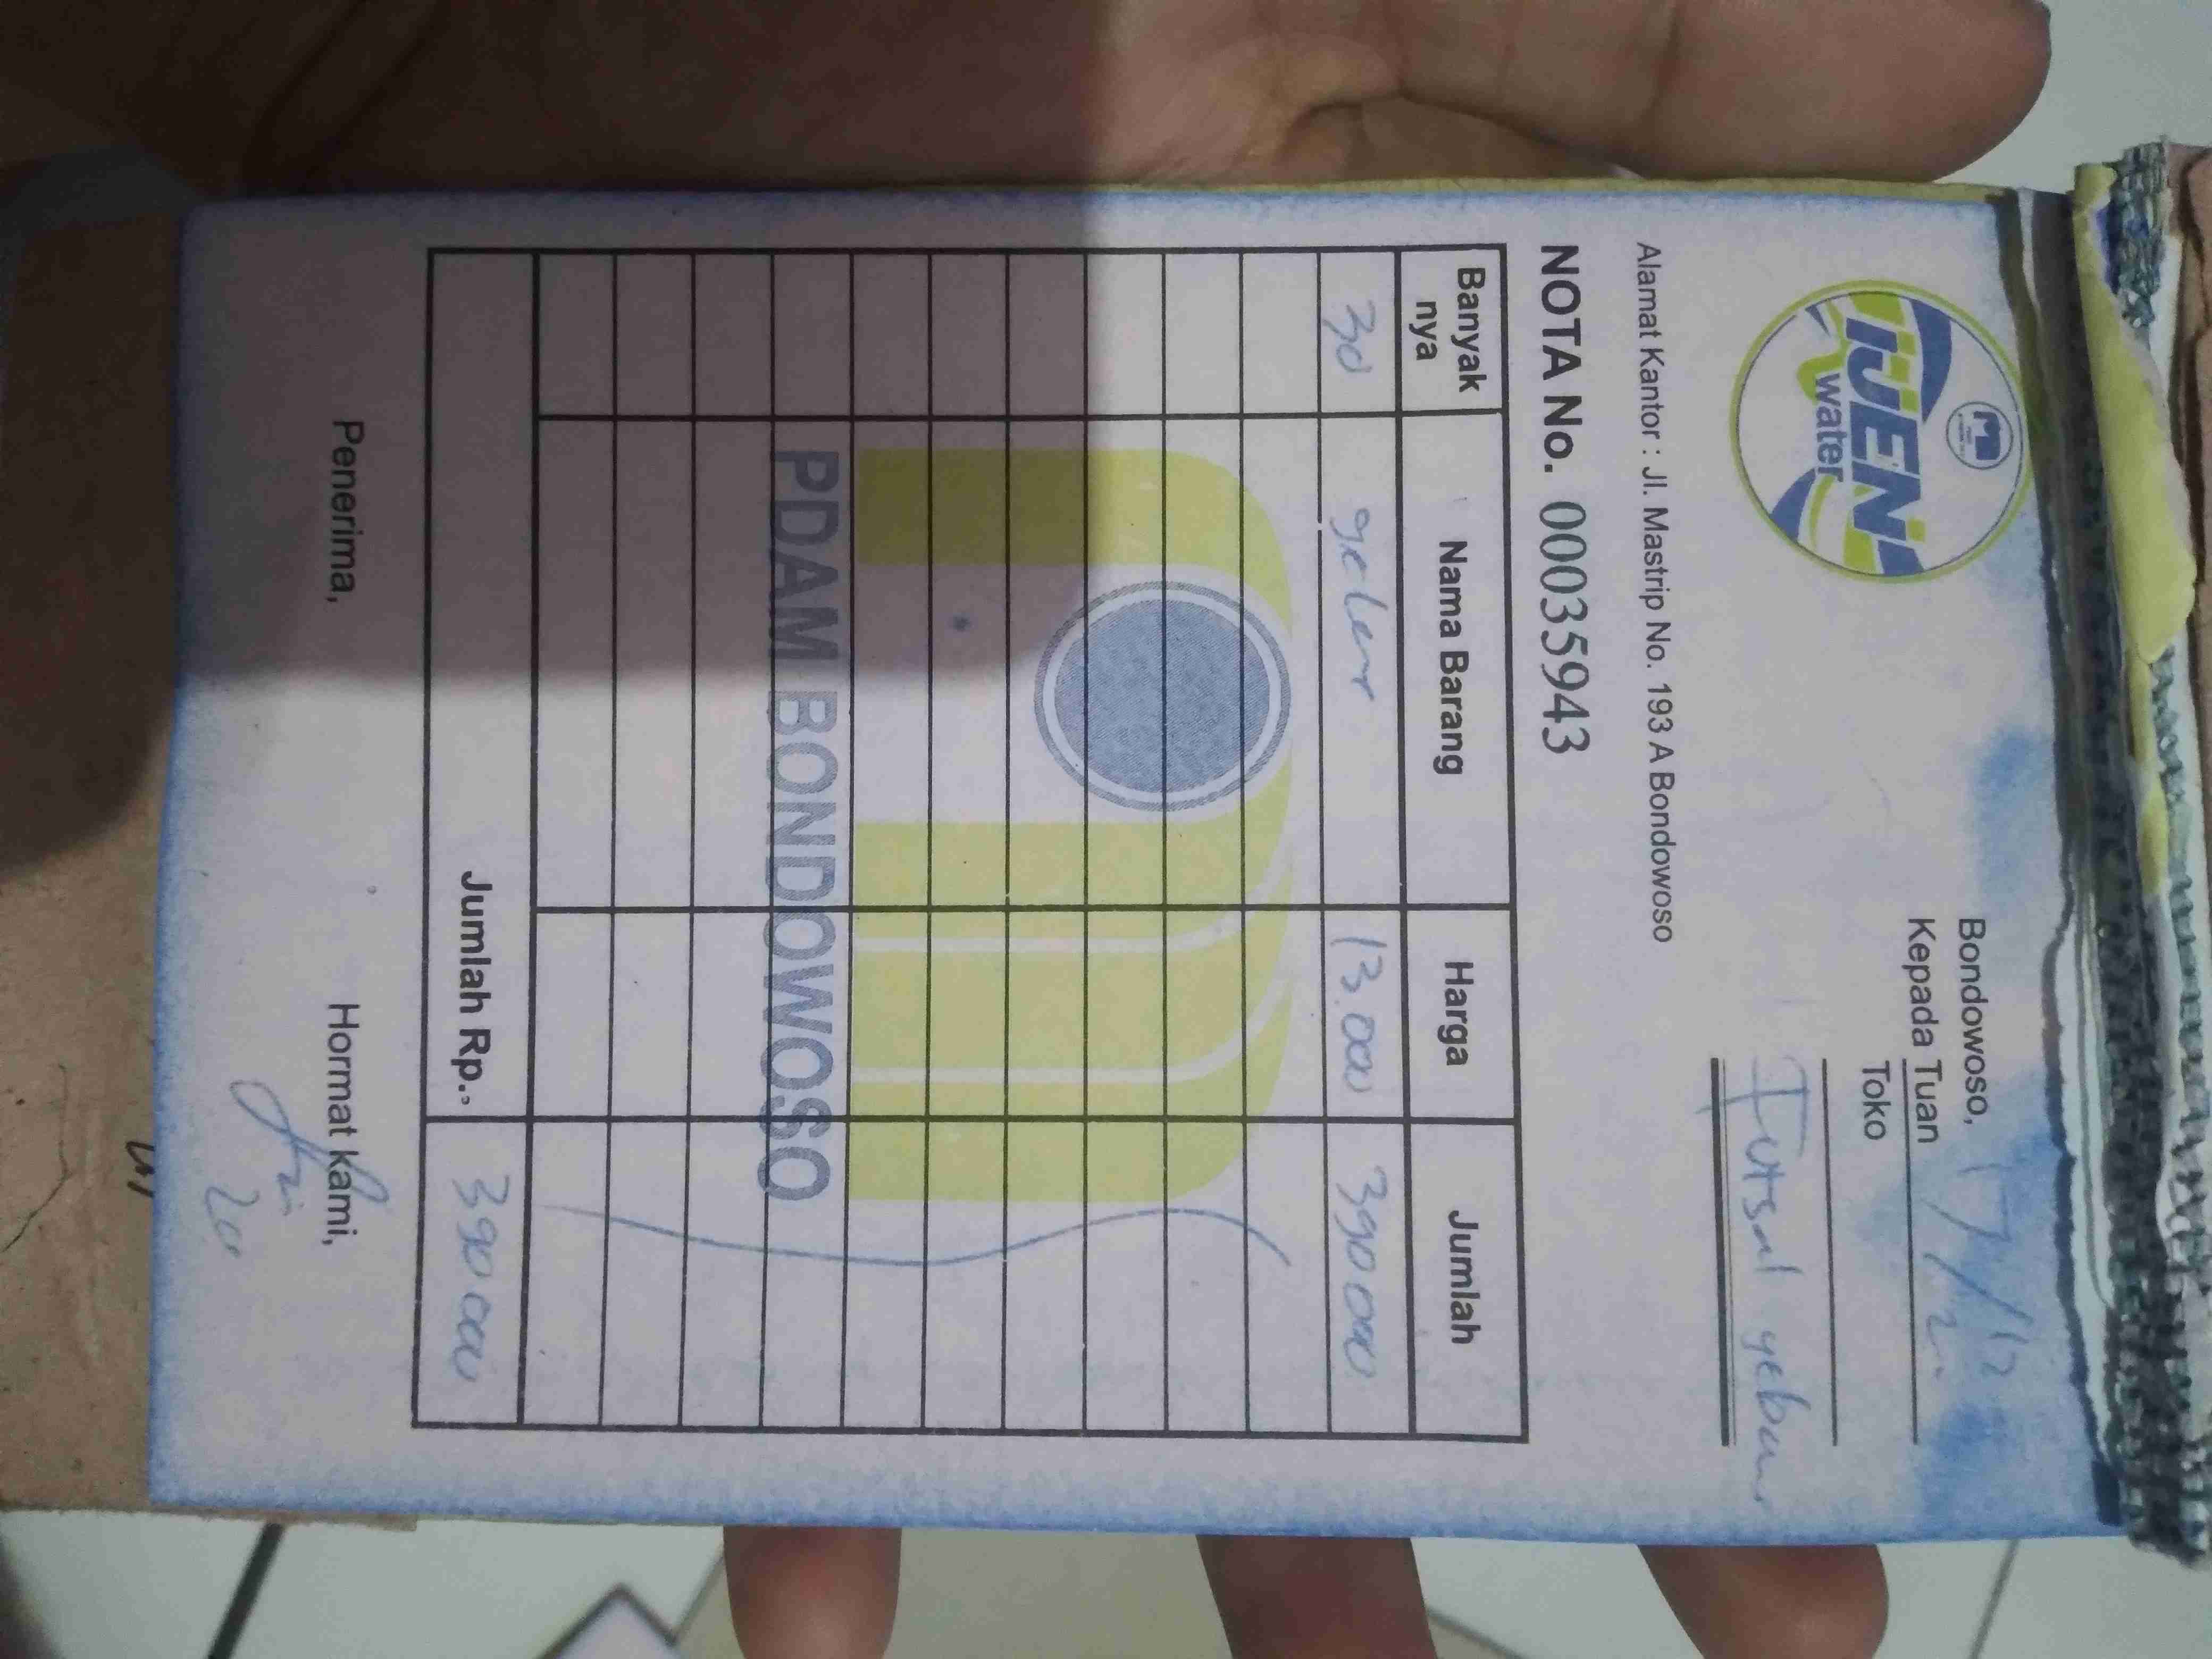 IJEN
water
Bondowoso, 17/12
Kepada Tuan
Toko
Futsal
Alamat Kantor : Jl. Mastrip No. 193 A Bondowoso
NOTA No. 00035943
Banyak nya Nama Barang Harga Jumlah
30 gelas 13.000 390.000
PDAM BONDOWOSO
Jumlah Rp. 390.000
Penerima, Hormat kami,